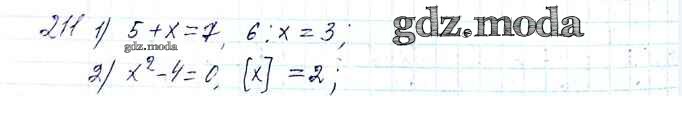 211 1) 5+x=7, 6:x=3; gdz.moda
gdz.moda
2) x²-4=0, [x]=2;